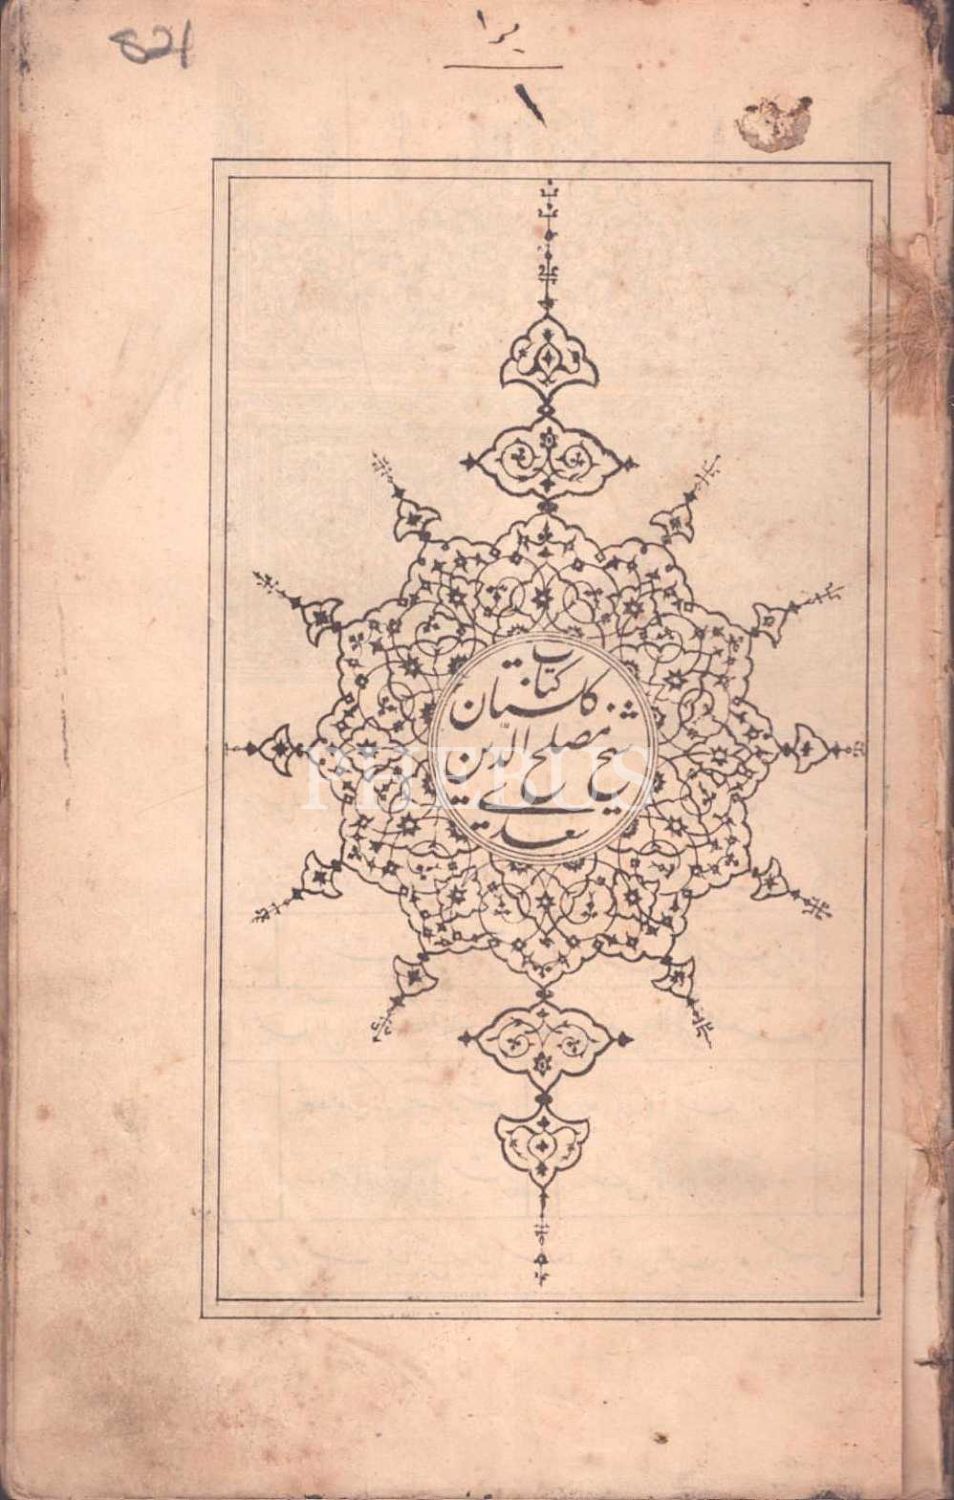 821
كتاب
كلستان
شيخ مصلح الدين
سعدي
PHEBUS